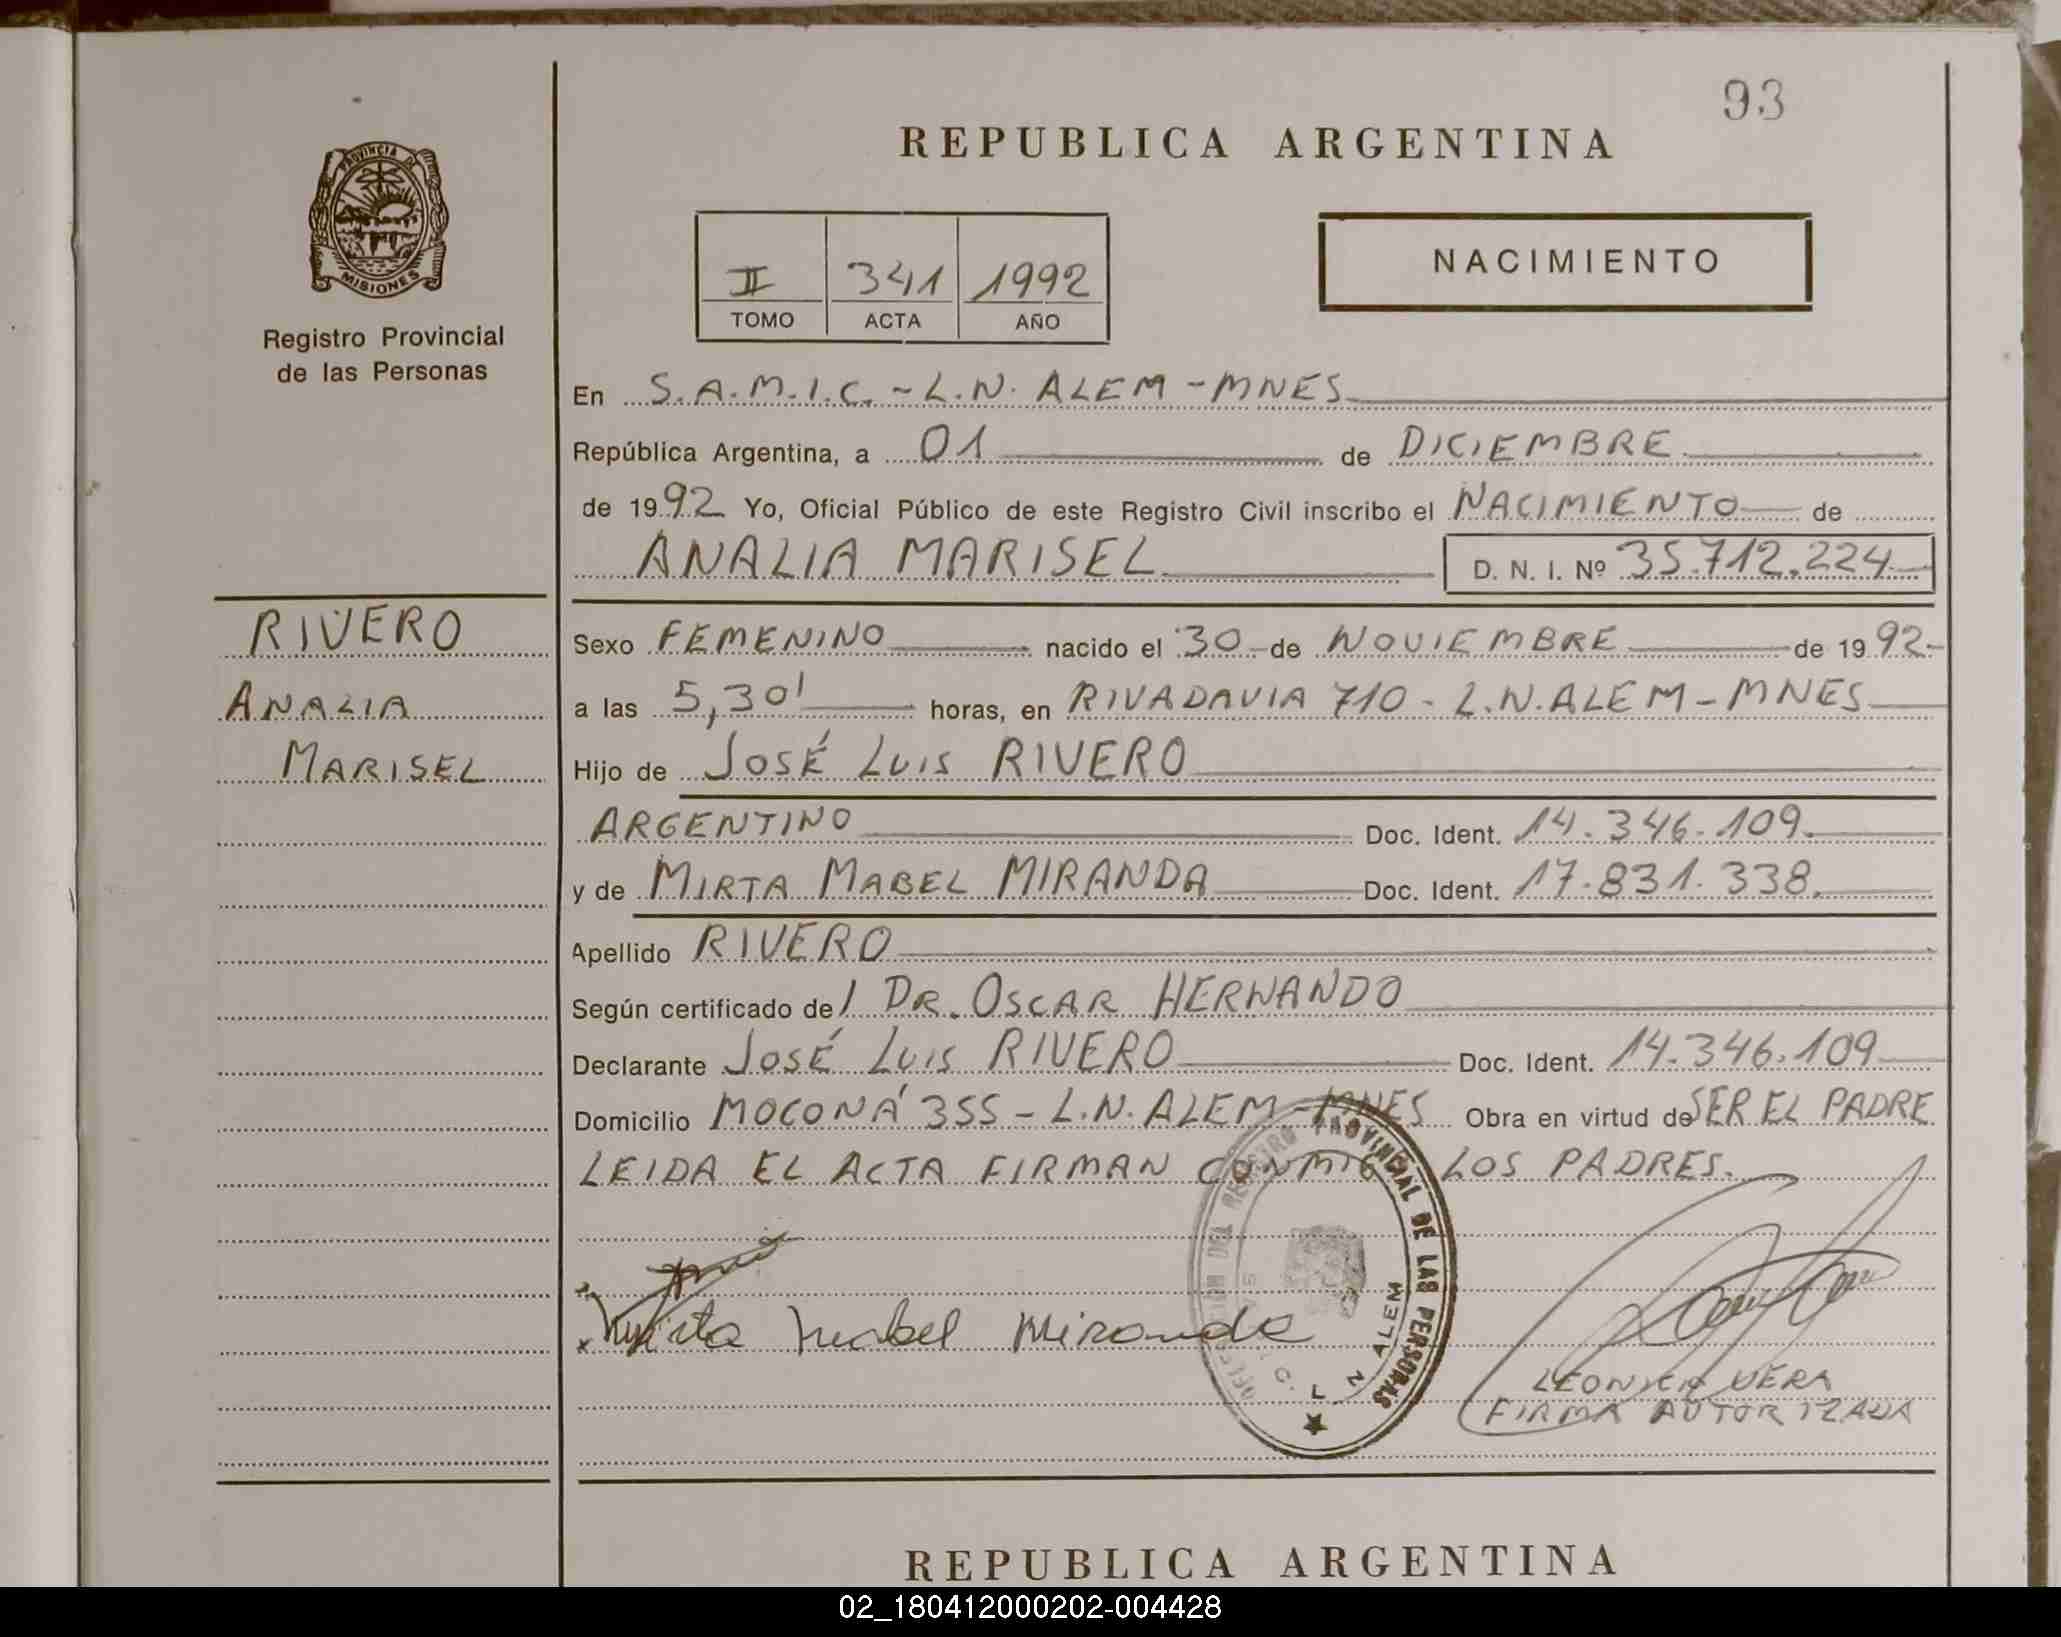 93
REPUBLICA ARGENTINA
PROVINCIA DE
MISIONES
Registro Provincial
de las Personas
II 341 1992
TOMO ACTA AÑO
NACIMIENTO
En S.A.M.I.C. - L.N. ALEM - MNES
República Argentina, a 01 de DICIEMBRE
de 1992 Yo, Oficial Público de este Registro Civil inscribo el NACIMIENTO de
ANALIA MARISEL D. N. I. Nº 35.712.224
RIVERO
ANALIA
MARISEL
Sexo FEMENINO nacido el 30 de NOVIEMBRE de 1992
a las 5,30' horas, en RIVADAVIA 710 - L.N. ALEM - MNES
Hijo de JOSÉ LUIS RIVERO
ARGENTINO Doc. Ident. 14.346.109.
y de MIRTA MABEL MIRANDA Doc. Ident. 17.831.338.
Apellido RIVERO
Según certificado del DR. OSCAR HERNANDO
Declarante JOSÉ LUIS RIVERO Doc. Ident. 14.346.109
Domicilio MOCONÁ 355 - L.N. ALEM - MNES Obra en virtud de SER EL PADRE
LEIDA EL ACTA FIRMAN CONMIGO LOS PADRES.
Mirta Mabel Miranda
DELEGACION DEL REGISTRO PROVINCIAL DE LAS PERSONAS
L N ALEM
VERA
FIRMA AUTORIZADA
REPUBLICA ARGENTINA
02_180412000202-004428